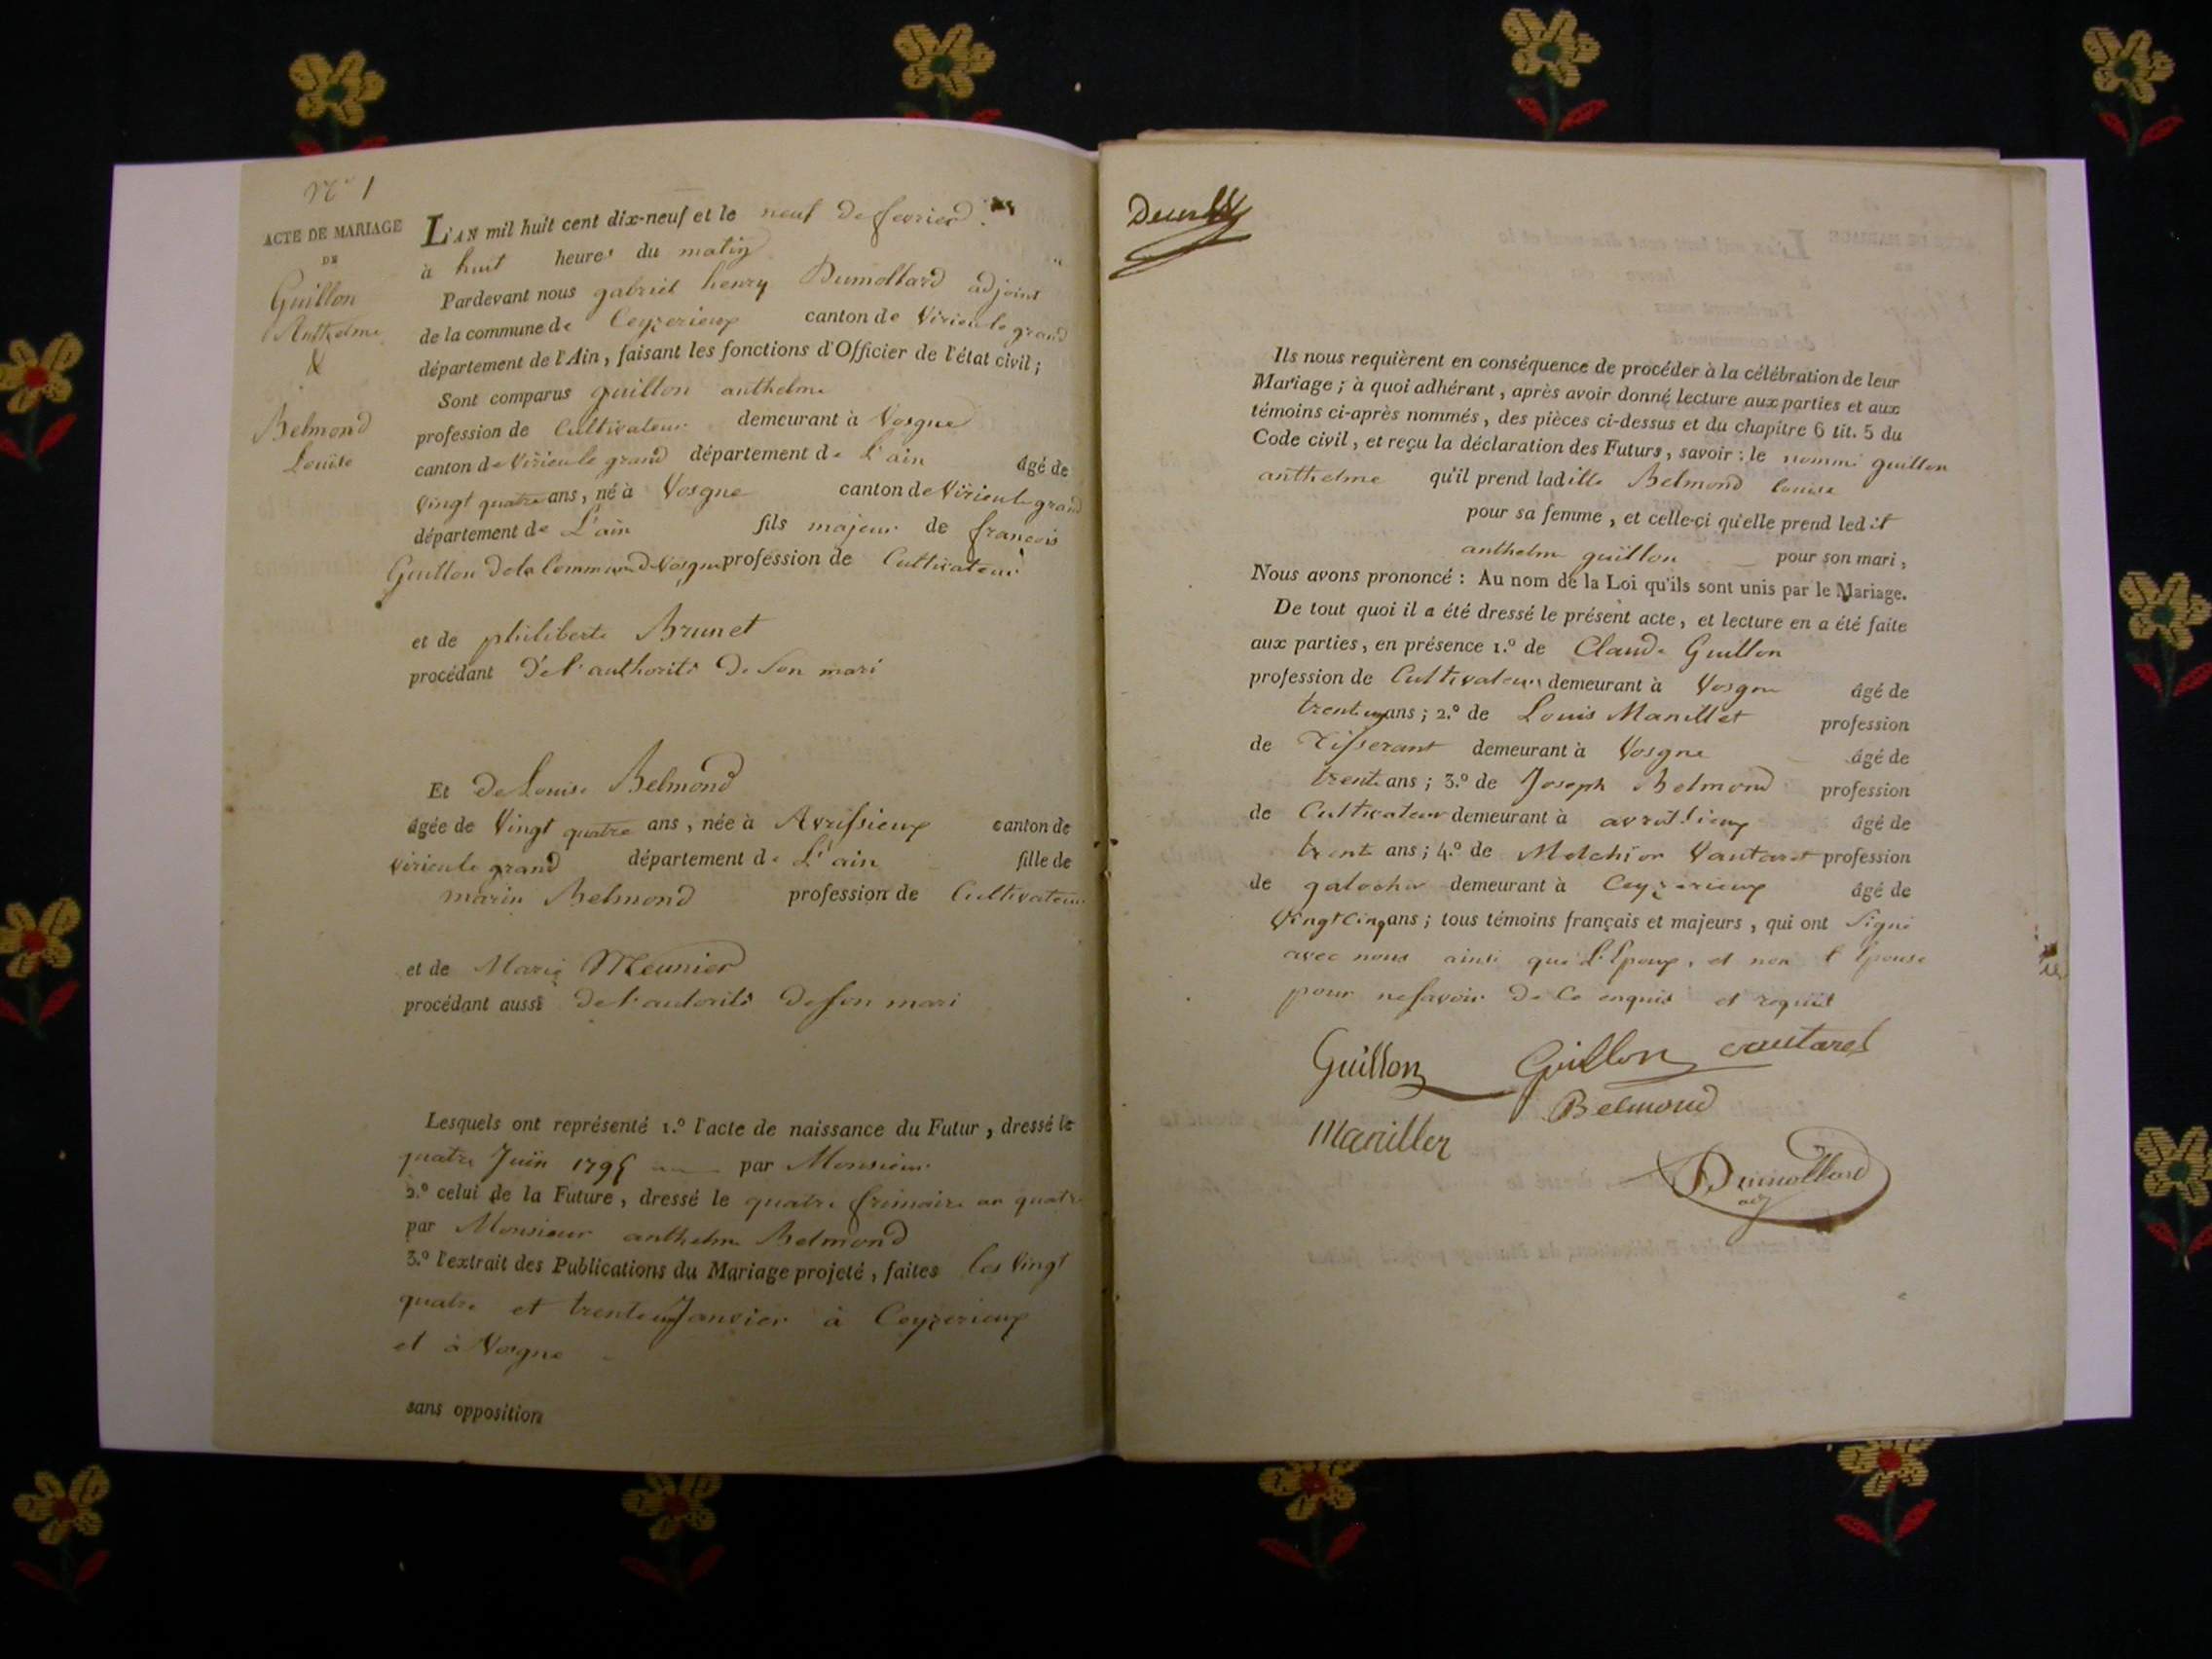 N.° 1
ACTE DE MARIAGE
DE
Guillon
Anthelme
&
Belmond
Louise
L'AN mil huit cent dix-neuf et le neuf de fevrier
à huit heures du matin
Pardevant nous gabriel henry Dumollard adjoint
de la commune de Ceyzerieux canton de Virieu le grand
département de l'Ain, faisant les fonctions d'Officier de l'état civil;
Sont comparus guillon anthelme
profession de Cultivateur demeurant à Vosgne
canton de Virieu le grand département de L'ain âgé de
vingt quatre ans, né à Vosgne canton de Virieu le grand
département de L'ain fils majeur de francois
Guillon de la Commune de Vosgne profession de Cultivateur
et de philiberte Brunet
procédant de l'authorité de Son mari
Et de Louise Belmond
âgée de Vingt quatre ans, née à Avrissieux canton de
virieu le grand département de L'ain fille de
marin Belmond profession de Cultivateur
et de Marie Meunier
procédant aussi de l'autorité de son mari
Lesquels ont représenté 1.° l'acte de naissance du Futur, dressé le
quatre Juin 1795 par Monsieur
2.° celui de la Future, dressé le quatre frimaire an quatre
par Monsieur anthelme Belmond
3.° l'extrait des Publications du Mariage projeté, faites les Vingt
quatre et trente un Janvier à Ceyzerieux
et à Vosgne
sans opposition
Ils nous requièrent en conséquence de procéder à la célébration de leur
Mariage; à quoi adhérant, après avoir donné lecture aux parties et aux
témoins ci-après nommés, des pièces ci-dessus et du chapitre 6 tit. 5 du
Code civil, et reçu la déclaration des Futurs, savoir: le nommé guillon
anthelme qu'il prend ladille Belmond louise
pour sa femme, et celle-çi qu'elle prend ledit
anthelme guillon pour son mari,
Nous avons prononcé: Au nom de la Loi qu'ils sont unis par le Mariage.
De tout quoi il a été dressé le présent acte, et lecture en a été faite
aux parties, en présence 1.° de Claude Guillon
profession de Cultivateur demeurant à Vosgne âgé de
trente un ans; 2.° de Louis Manillet profession
de Tisserant demeurant à Vosgne âgé de
trente ans; 3.° de Joseph Belmond profession
de Cultivateur demeurant à avrissieux âgé de
trente ans; 4.° de Melchior Vautaret profession
de galochier demeurant à Ceyzerieux âgé de
Vingt Cinq ans; tous témoins français et majeurs, qui ont Signé
avec nous ainsi que L'Epoux, et non l'Epouse
pour ne savoir de Ce enquis et requit
Guillon Guillon vautaret
Belmond
Maniller
Dumollard
adj